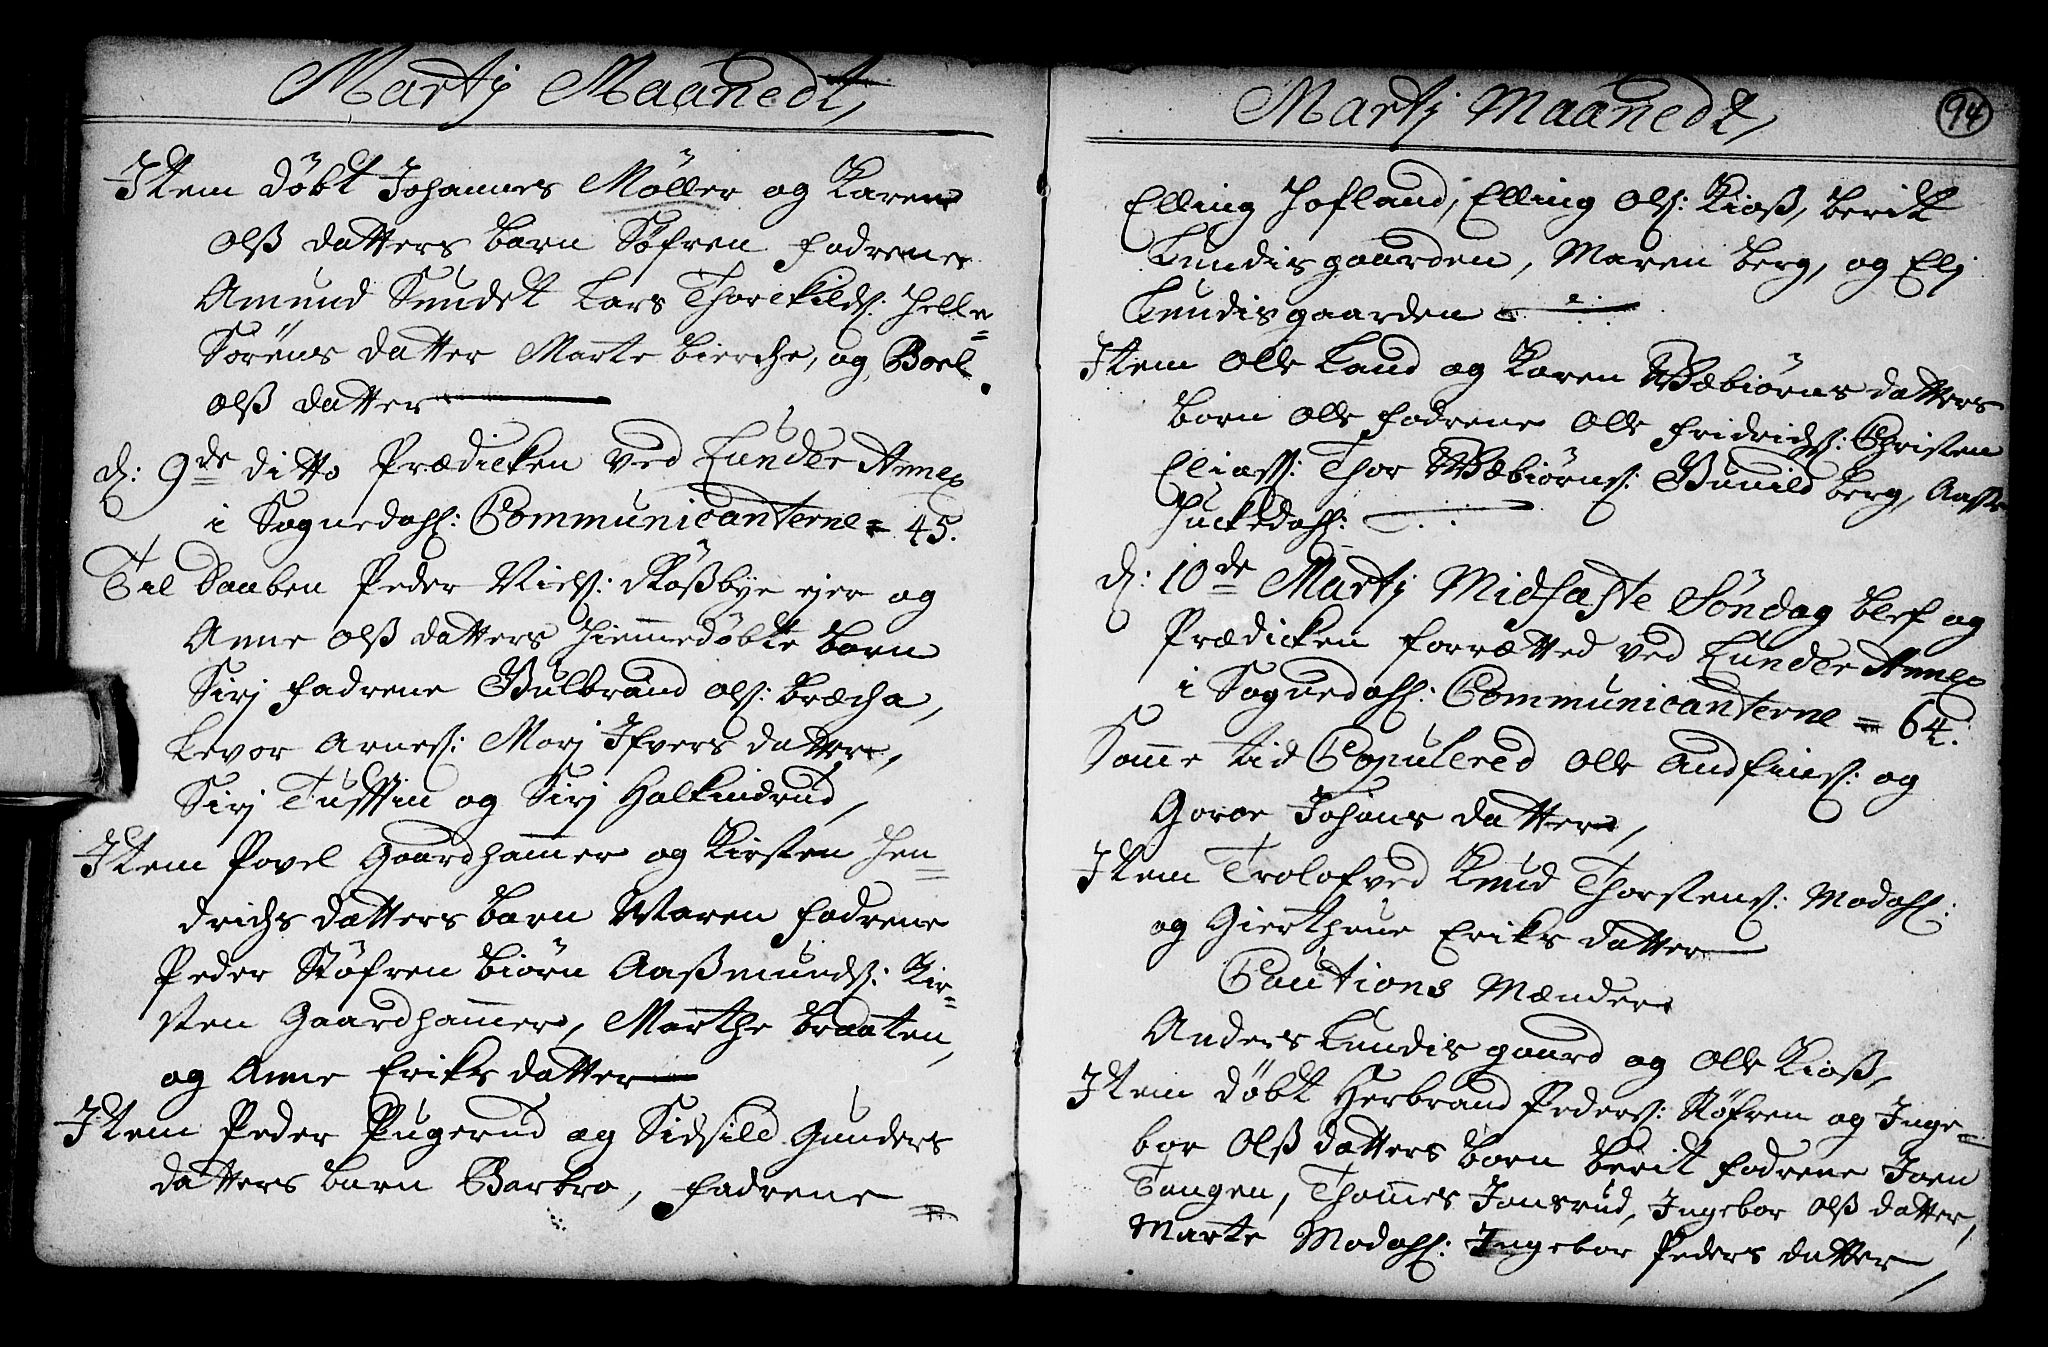 Martj Maanedt,
Item døbt Johannes Møller og Karen
Olß datters barn Søfren fadrene
Amund Sundet Lars Thorckilds: Helle=
Sørens datter Marte bierche, og Boel
Olß datter
d: 9de ditto Prædicken ved Lunder Annex
i Sognedahl: Communicanterne = 45.
Til Daaben Peder Niels: Røßbye ejer og
Anne Olß datters hiemmedøbte barn
Sirj fadrene Gulbrand Ols: bræcha,
Levor Arnes: Marj Ifvers datter,
Sirj Tussin og Sirj Halkindrud,
Item Povel Gaardhammer og Kirsten Hen=
drichs datters barn Maren fadrene
Peder Støfren biørn Aaßmunds: Kir=
sten Gaardhammer, Marthe braaten,
og Anne Eriks datter
Item Peder Pugerud og Sidsild Gunders
datters barn Barbro, fadrene =
Martj Maanedt,
94
Elling Hofland, Elling Ols: Kioß, berit
Lundisgaarden, Maren berg, og Elj
Lundisgaarden
Item Olle Land og Karen Wæbiørns datters
barn Olle fadrene Olle fridrichs: Christen
Eliass: Thor Wæbiørns: Gunild berg, Aasse
Huckedahl:
d: 10de Martj Midfaste Søndag blef og
Prædicken forrætted ved Lunder Annex
i Sognedahl: Communicanterne = 64.
Samme tid Copulered Olle Andfins: og
Goroe Johans datter,
Item Trolofved Knud Thorstens: Modahl:
og Gierthrue Eriks datter
Cautions Mænder
Anders Lundisgaard og Olle Kioß,
Item døbt Herbrand Peders: Støfren og Inge=
bor Olß datters barn berit fadrene Joen
Tangen, Thommes Jonsrud, Ingebor Olß datter,
Marte Modahl: Ingebor Peders datter,